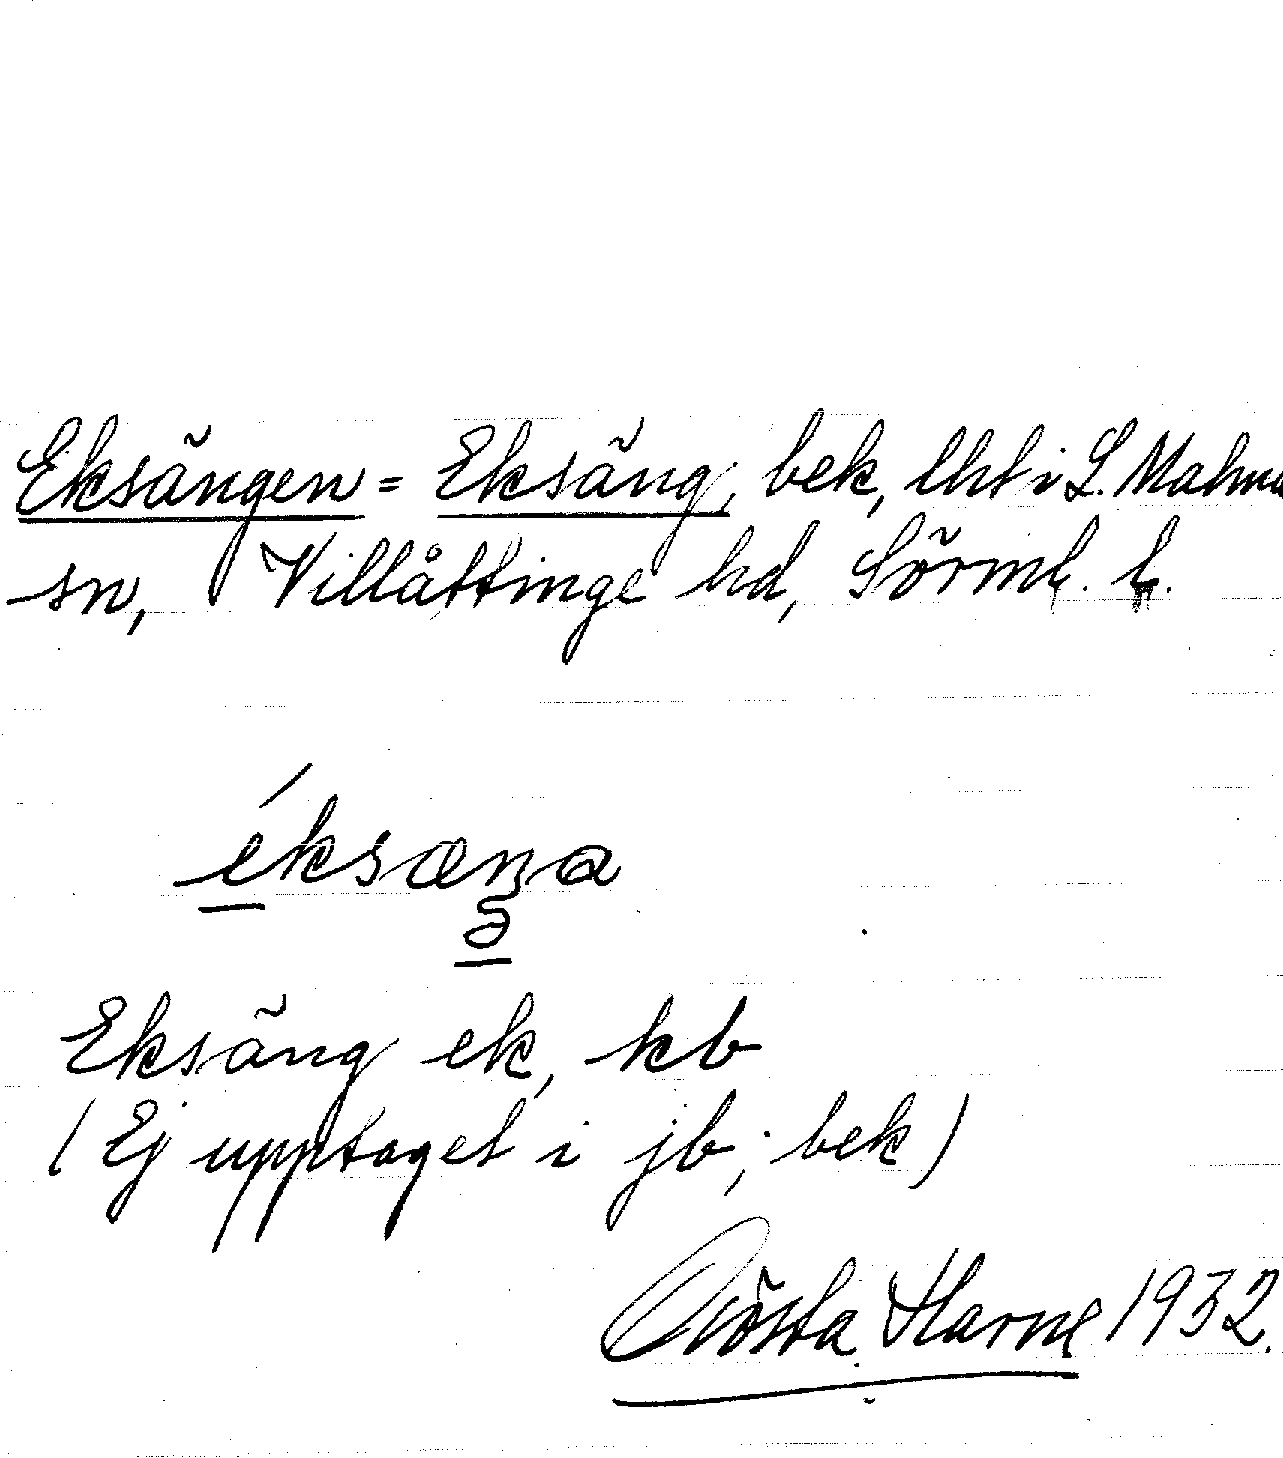 Eksängen = Eksäng, bek, lht i L. Malma
sn, Villåttinge hd, Sörml. l.
éksæŋa
Eksäng ek, kb
(Ej upptaget i jb; bek)
Gösta Harne 1932.